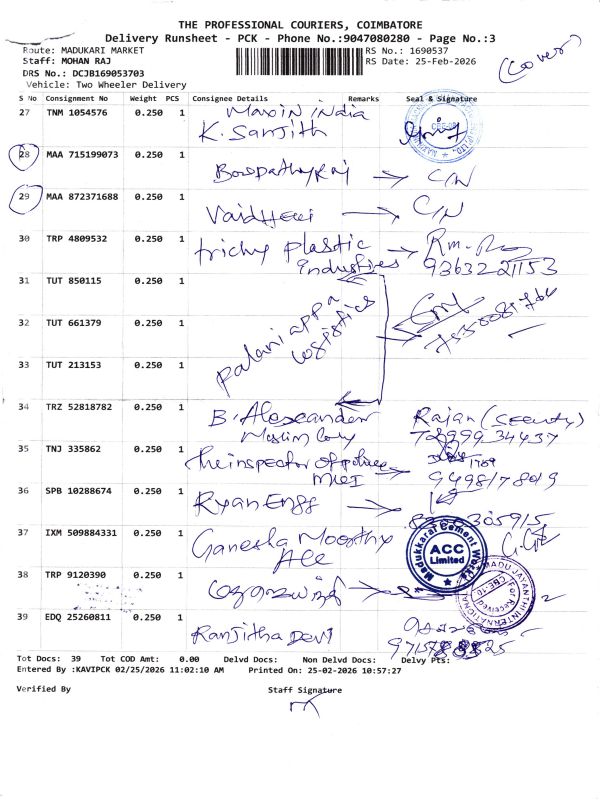 THE PROFESSIONAL COURIERS, COIMBATORE
Delivery Runsheet - PCK - Phone No.:9047080280 - Page No.:3
Route: MADUKARI MARKET
RS No.: 1690537
Staff: MOHAN RAJ
RS Date: 25-Feb-2026
(Cover)
DRS No.: DCJB169053703
Vehicle: Two Wheeler Delivery
S No Consignment No Weight PCS Consignee Details Remarks Seal & Signature
27 TNM 1054576 0.250 1 Maxin india
K. Sanjith
28 MAA 715199073 0.250 1
C/N
29 MAA 872371688 0.250 1
C/N
30 TRP 4809532 0.250 1 trichy plastic
industries 9363221153
31 TUT 850115 0.250 1
palaniappa
logistics
32 TUT 661379 0.250 1
33 TUT 213153 0.250 1
34 TRZ 52818782 0.250 1 B. Alexander Rajan (Security)
35 TNJ 335862 0.250 1 The inspector of police
9498178019
36 SPB 10288674 0.250 1 Ryan Engg
37 IXM 509884331 0.250 1 Ganesha Moorthy
ACC
Madukkarai Cement Works
ACC
Limited
38 TRP 9120390 0.250 1
JAYANTHI INTERNATIONAL
For Received
CBE-10
39 EDQ 25260811 0.250 1
Ranjitha Devi
Tot Docs: 39 Tot COD Amt: 0.00 Delvd Docs: Non Delvd Docs: Delvy Pts:
Entered By :KAVIPCK 02/25/2026 11:02:10 AM Printed On: 25-02-2026 10:57:27
Verified By Staff Signature